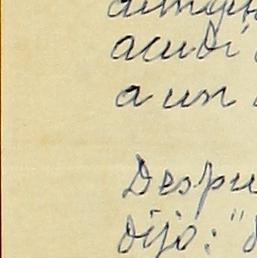 acudí
a un
Despu
dijo: "